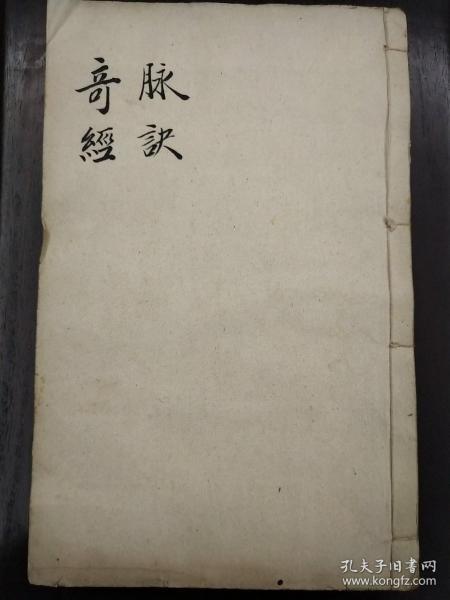 脉訣
奇經
孔夫子旧书网
www.kongfz.com